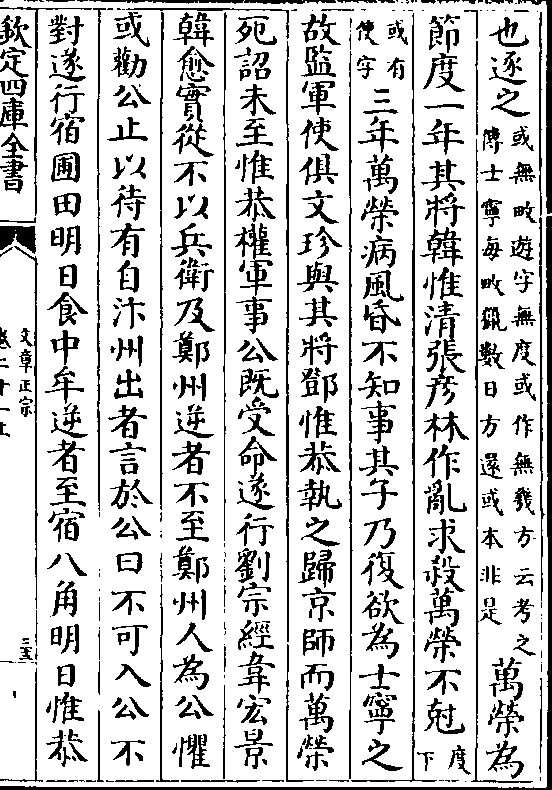 也逐之或無畋遊字無度或作無幾方云考之
傳士寧每畋獵數日方還或本非是萬榮為
節度一年其將韓惟清張彦林作亂求殺萬榮不尅度
下
或有
使字三年萬榮病風昏不知事其子乃復欲為士寧之
故監軍使俱文珍與其將鄧惟恭執之歸京師而萬榮
死詔未至惟恭權軍事公既受命遂行劉宗經韋宏景
韓愈實從不以兵衛及鄭州逆者不至鄭州人為公懼
或勸公止以待有自汴州出者言於公曰不可入公不
對遂行宿圃田明日食中牟逆者至宿八角明日惟恭
欽定四庫全書
文章正宗
卷二十一上
三五